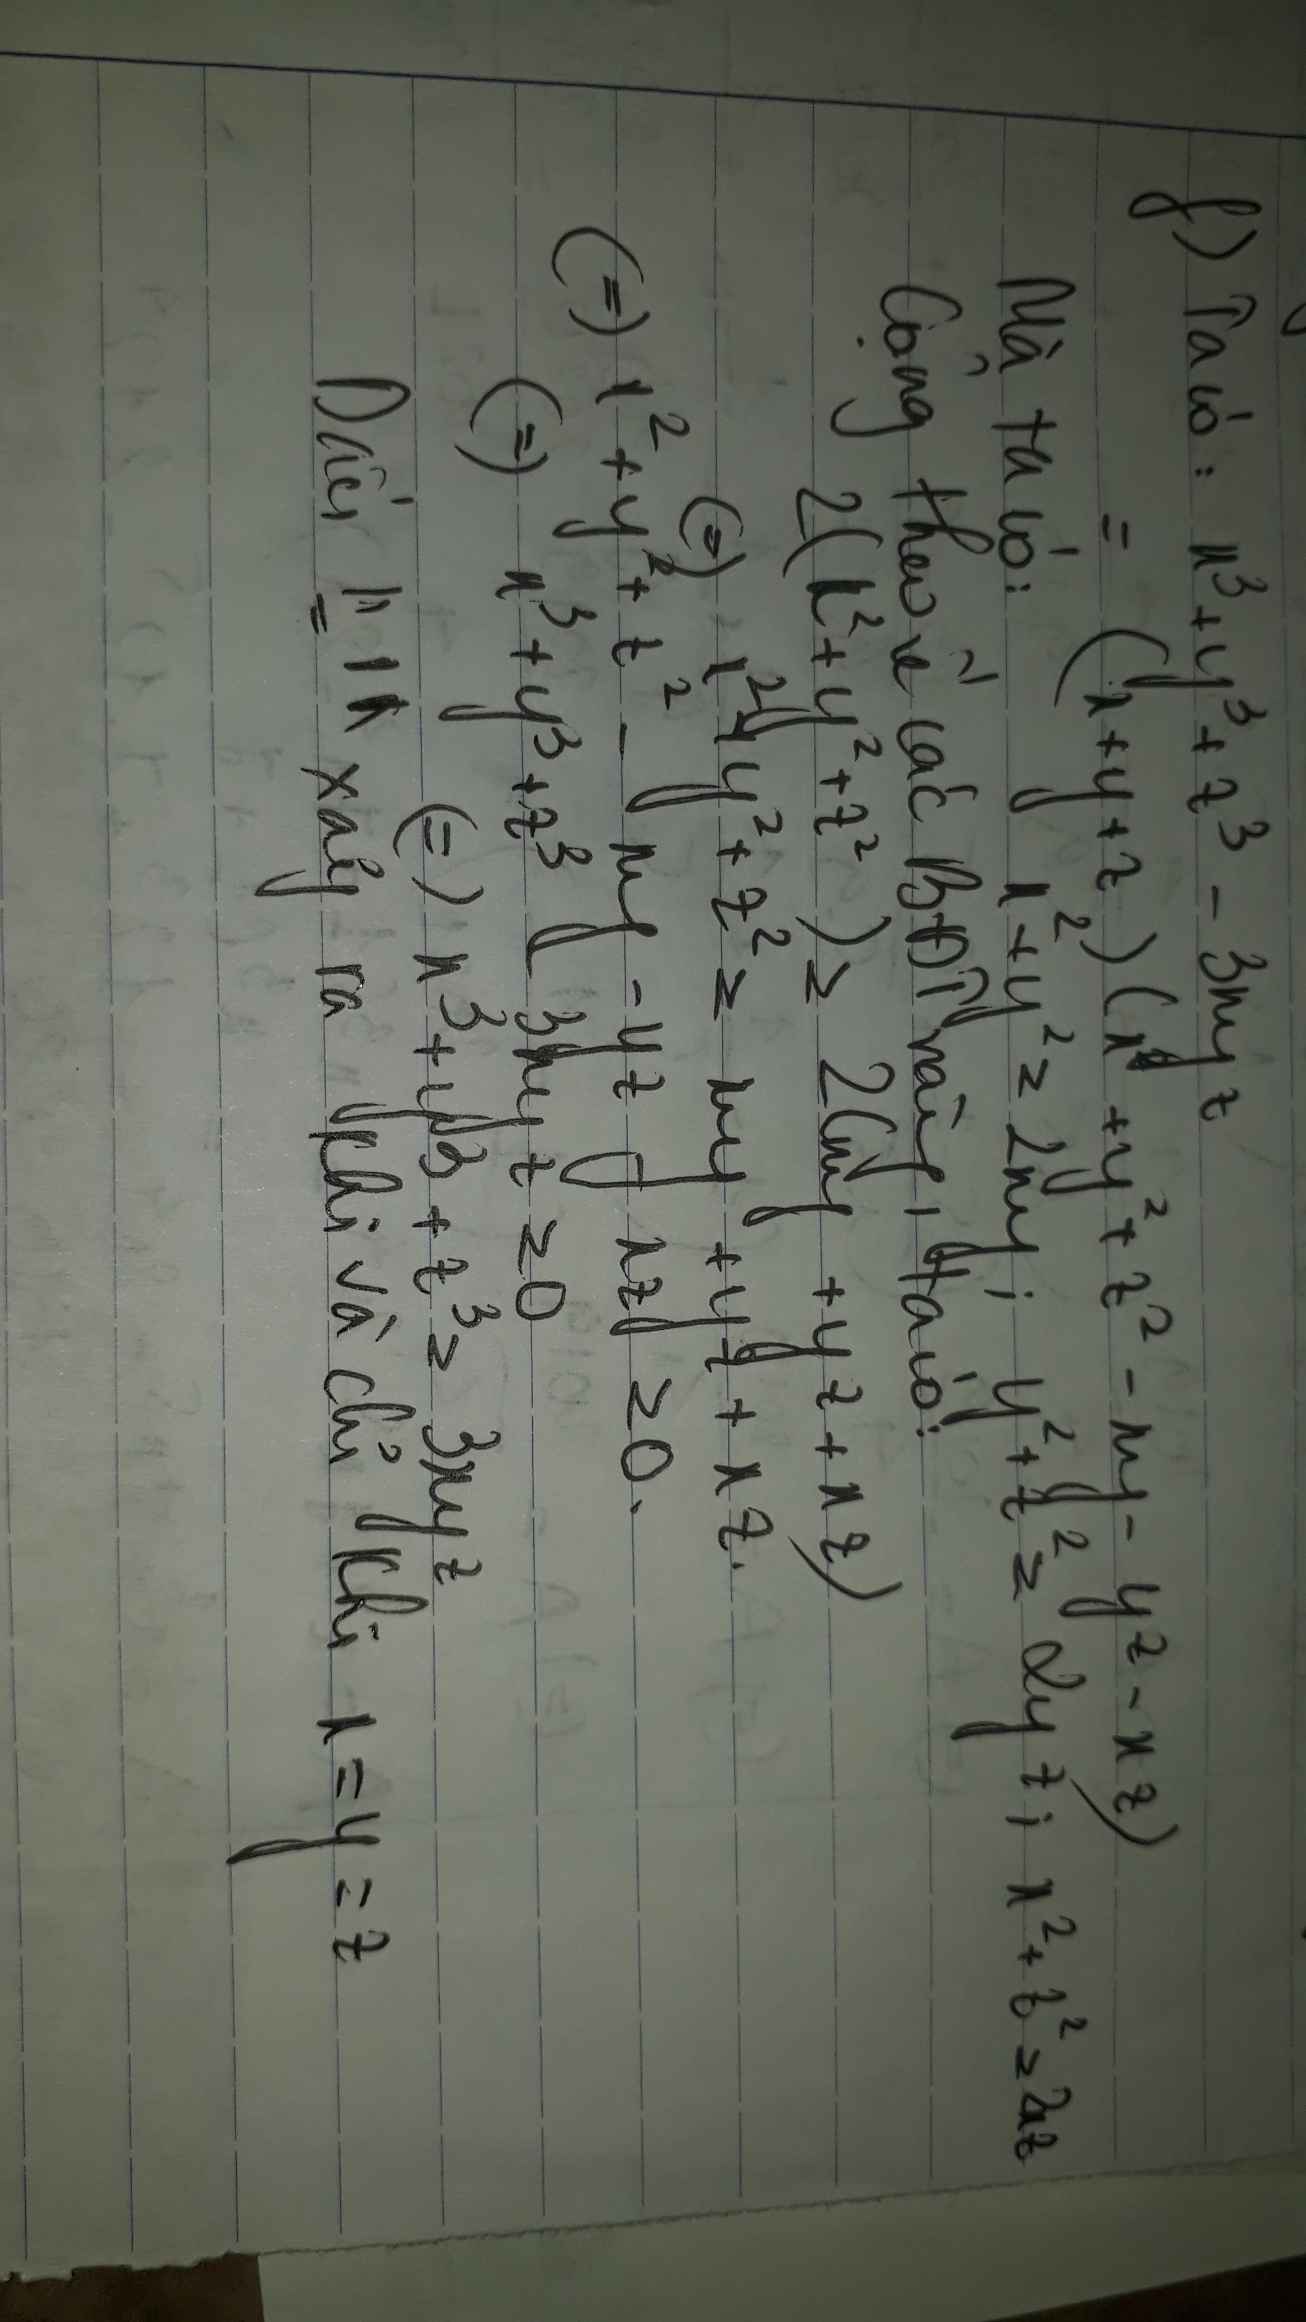 f) Ta có: x³ + y³ + z³ - 3xyz
= (x + y + z)(x² + y² + z² - xy - yz - xz)
Mà ta có: x² + y² ≥ 2xy; y² + z² ≥ 2yz; x² + z² ≥ 2xz
Cộng theo vế các BĐT này, ta có:
2(x² + y² + z²) ≥ 2(xy + yz + xz)
(=) x² + y² + z² ≥ xy + yz + xz.
(=) x² + y² + z² - xy - yz - xz ≥ 0.
(=) x³ + y³ + z³ - 3xyz ≥ 0
(=) x³ + y³ + z³ ≥ 3xyz
Dấu "=" xảy ra khi và chỉ khi x = y = z